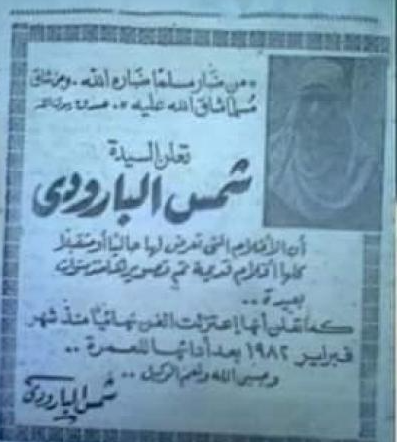 « من ضار مسلما ضاره الله . ومن شاق
مسلما شاق الله عليه » . صدق رسول الله
تعلن السيدة
شمس البارودى
أن الأفلام التى تعرض لها حاليا أو مستقبلا
كلها أفلام قديمة تم تصويرها منذ سنوات
بعيدة ..
كما تعلن أنها إعتزلت الفن نهائيا منذ شهر
فبراير ١٩٨٢ بعد أدائها للعمرة ..
وحسبى الله ونعم الوكيل ..
شمس البارودى